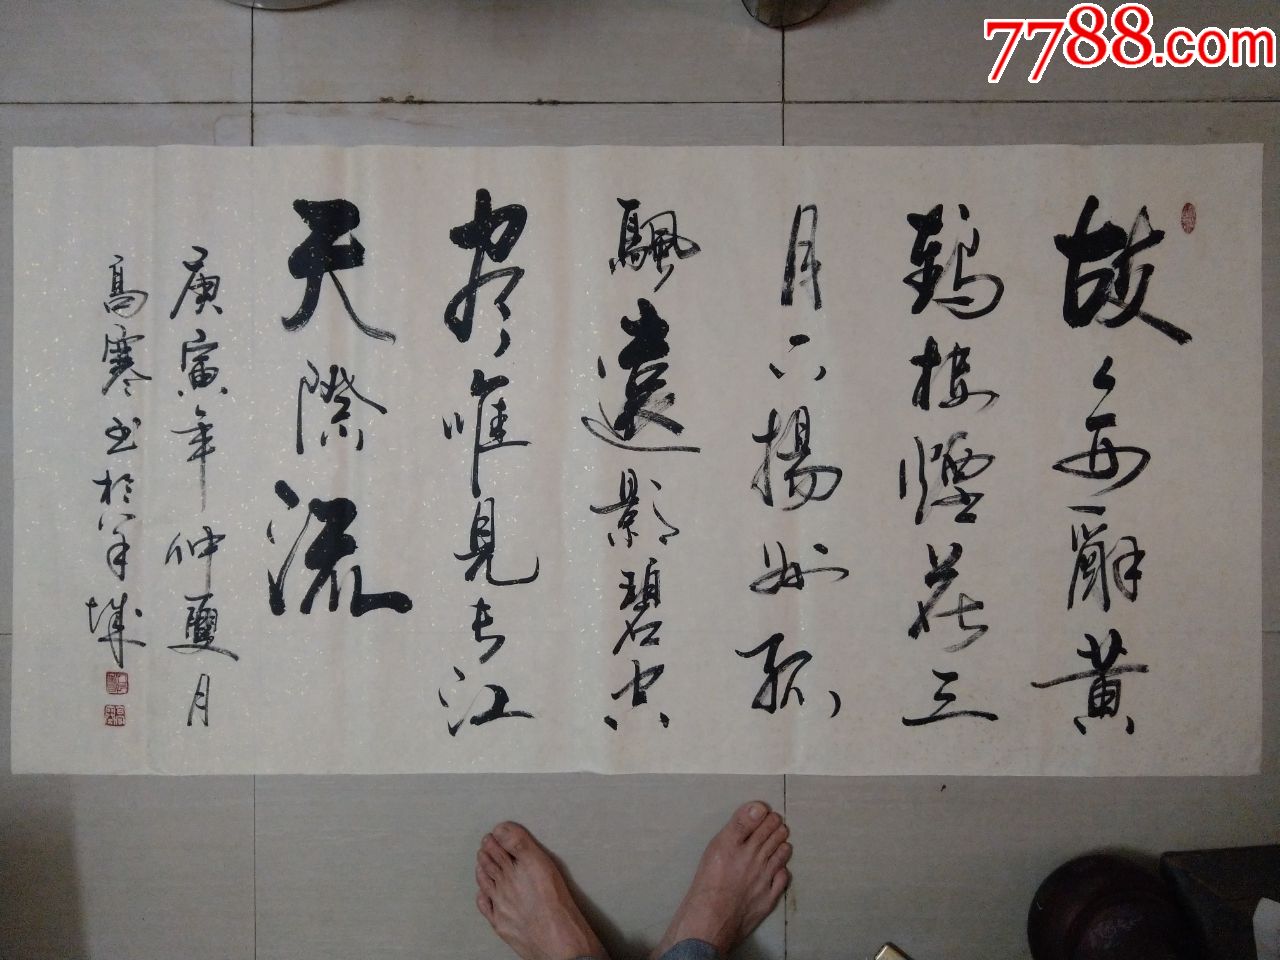 7788.com
故人西辭黄
鶴樓煙花三
月下揚州孤
颿遠影碧空
盡唯見長江
天際流
庚寅年仲夏月
高寒书於羊城